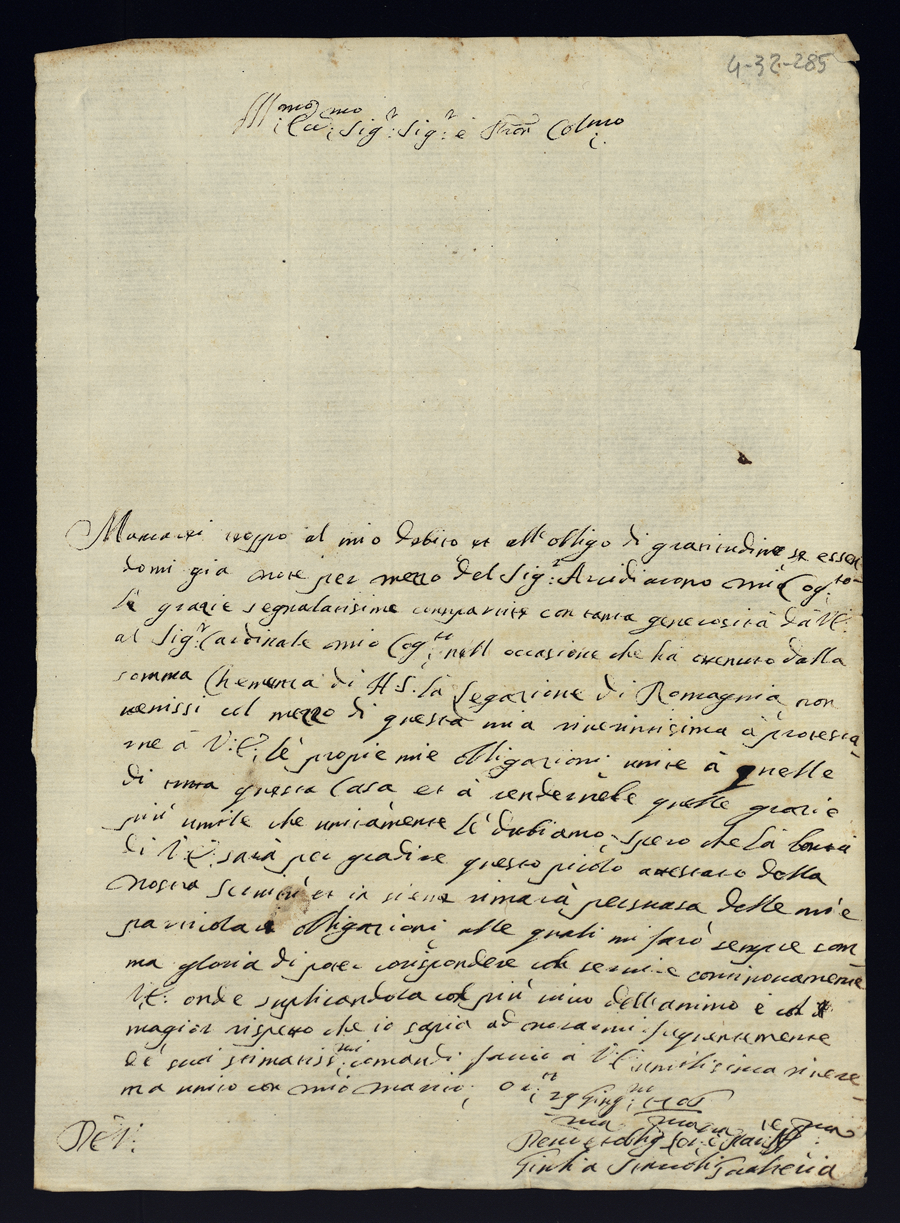 4-32-285
Ill:mo Ecc:mo Sig:r Sig:r e Pron Col:mo
Mancarei troppo al mio debito et all'obligo di gratitudine se essen
domi già note per mezzo del Sig:r Arcidiacono mio Cog:to
le grazie segnalatissime compartite con tanta generosità dà V:E:
al Sig:r Cardinale mio Cog:to nell occasione che hà otenuto dalla
somma Clemenza di N:S: la Legazione di Romagnia non
venissi col mezzo di questa mia riverintissima à protesta
me à V:E: le propie mie obligazioni unite à quelle
di tutta questa Casa et à rendernele quelle grazie
più umile che unitamente le dobiamo, spero che la bontà
di V:E: sarà per gradire questo picolo atestato della
nostra servitù et in siene rimarà persuasa delle mie
particolari obligazioni alle quali mi farò sempre som
ma gloria di poter corispondere col servire continovamente
V:E: onde suplicandola col più vivo dell'animo e col
magior rispetto che io sapia ad onorarmi frequentemente
de suoi stimatiss:mi comandi faccio à V:E: umilissima rivere
ma unito con mio marito;
29 Giug:
Giulia
Di V:E: